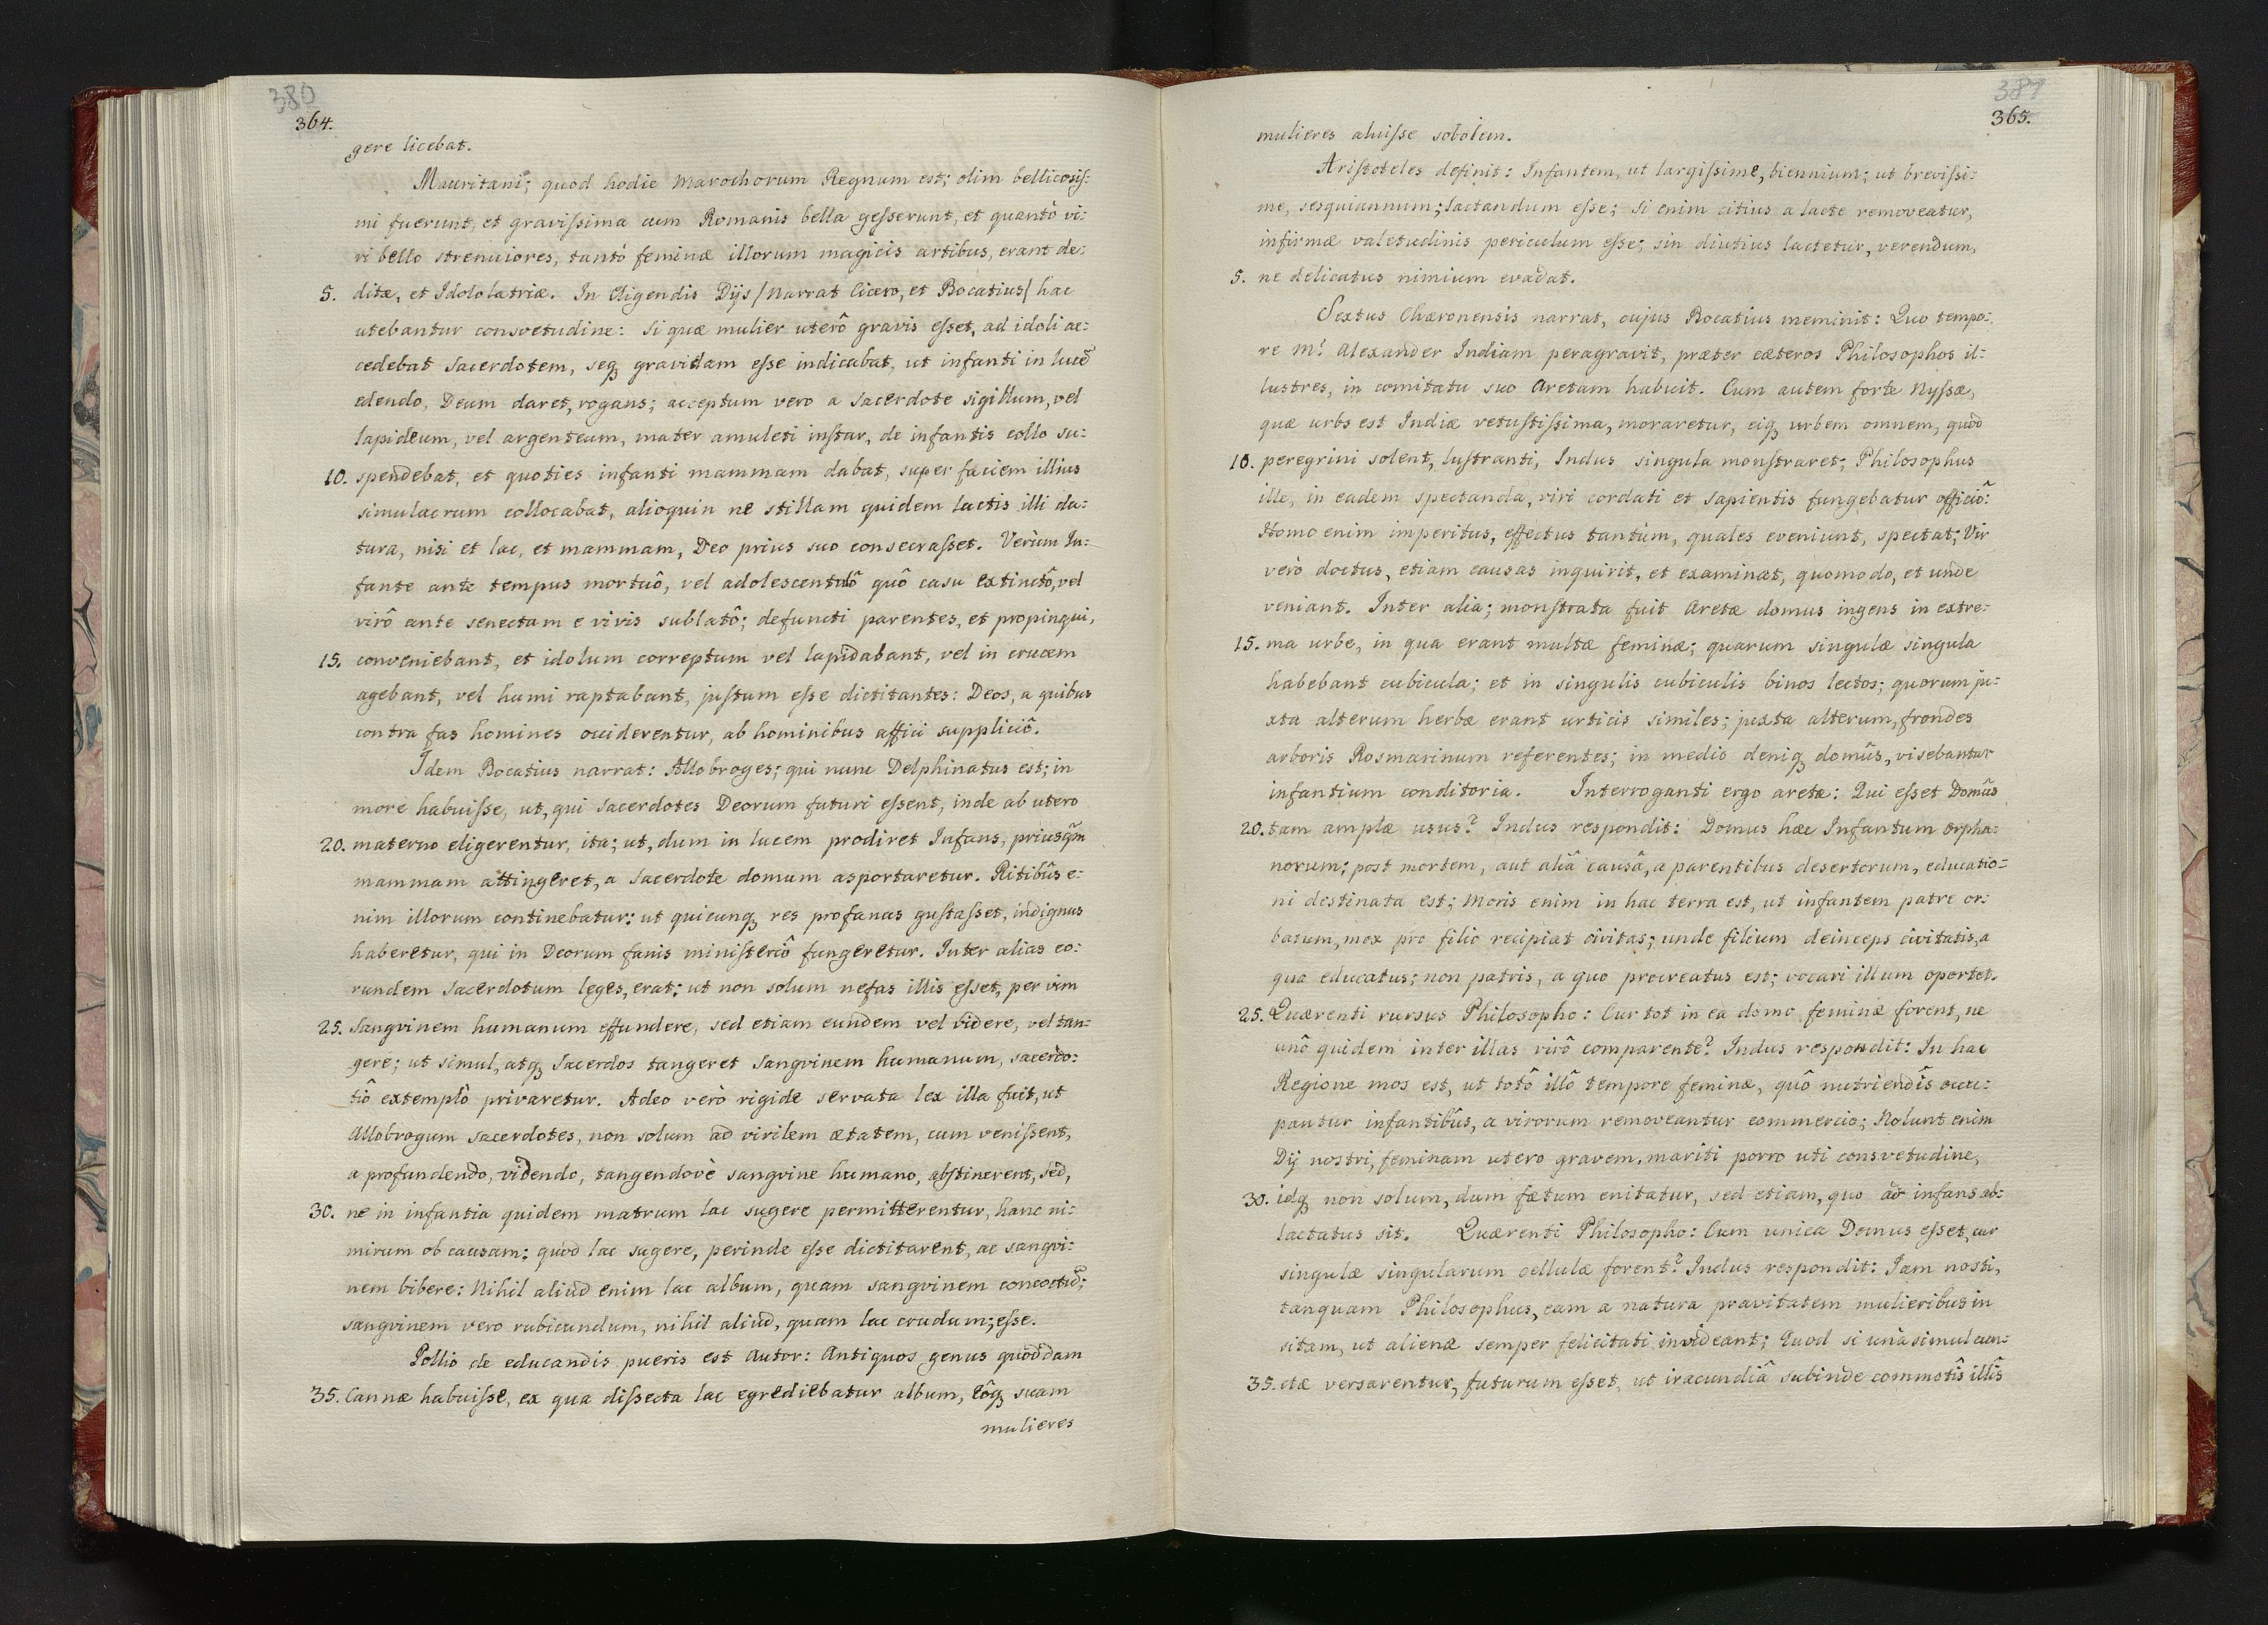 380
364.
gere licebat.
Mauritani; quod hodie Marochorum Regnum est; olim bellicosis⸗
mi fuerunt, et gravissima cum Romanis bella gesserunt, et quantò vi⸗
ri bello strenuiores, tantò feminæ illorum magicis artibus, erant de⸗
5. ditæ, et Idololatriæ. In Eligendis Dijs /Narrat Cicero, et Bocatius/ hac
utebantur consvetudine: Si quæ mulier uterô gravis esset, ad idoli ac⸗
cedebat Sacerdotem, seq́ gravidam esse indicabat, ut infanti in lucē
edendo, Deum daret, rogans; acceptum vero a Sacerdote sigillum, vel
lapideum, vel argenteum, mater amuleti instar, de infantis collo su⸗
10. spendebat, et quoties infanti mammam dabat, super faciem illius
simulacrum collocabat, alioquin ne stillam quidem lactis illi da⸗
tura, nisi et lac, et mammam, Deo prius suo consecrasset. Verùm In⸗
fante ante tempus mortuô, vel adolescentulô quô casu extinctô, vel
virô ante senectam e vivis sublatô; defuncti parentes, et propinqui,
15. conveniebant, et idolum correptum vel lapidabant, vel in crucem
agebant, vel humi raptabant, justum esse dictitantes: Deos, a quibus
contra fas homines occiderentur, ab hominibus affici suppliciô.
Idem Bocatius narrat: Allobroges; qui nunc Delphinatus est; in
more habuisse, ut, qui Sacerdotes Deorum futuri essent, inde ab utero
20. materno eligerentur, ita; ut, dum in lucem prodiret Infans, priusq̃m
mammam attingeret, a Sacerdote domum asportaretur. Ritibûs e⸗
nim illorum continebatur: ut quicunq́ res profanas gustasset, indignus
haberetur, qui in Deorum fanis ministeriô fungeretur. Inter alias eo⸗
rundem Sacerdotum leges, erat: ut non solum nefas illis esset, per vim
25. Sangvinem humanum effundere, sed etiam eundem vel videre, vel tan⸗
gere; ut simul, atq́ Sacerdos tangeret Sangvinem humanum, sacerdo⸗
tiô extemplò privaretur. Adeo verò rigide servata lex illa fuit, ut
Allobrogum sacerdotes, non solum ad virilem ætatem, cum venissent,
a profundendo, videndo, tangendovè sangvine humano, abstinerent, sed,
30. ne in infantia quidem matrum lac sugere permitterentur, hanc ni⸗
mirum ob causam: quòd lac sugere, perinde esse dictitarent, ac sangvi⸗
nem bibere: Nihil aliud enim lac album, quam sangvinem concoctū;
sangvinem vero rubicundum, nihil aliud, quam lac crudum; esse.
Pollio de educandis pueris est Autor: Antiquos genus quoddam
35. Cannæ habuisse, ex qua dissecta lac egrediebatur album, eôq́ suam
mulieres
387
365.
mulieres aluisse sobolem.
Aristoteles definit: Infantem, ut largissimè, biennium; ut brevissi⸗
me, sesquiannum; lactandum esse; si enim citius a lacte removeatur,
infirmæ valetudinis periculum esse; sin diutius lactetur, verendum,
5. ne delicatus nimium evadat.
Sextus Chæronensis narrat, cujus Bocatius meminit: Quo tempo⸗
re M: Alexander Indiam peragravit, præter cæteros Philosophos il⸗
lustres, in comitatu suo Aretam habuit. Cum autem forte Nyssæ,
quæ urbs est Indiæ vetustissima, moraretur, eiq́ urbem omnem, quod
10. peregrini solent, lustranti, Indus singula monstraret; Philosophus
ille, in eadem spectanda, viri cordati et sapientis fungebatur officiô:
Homo enim imperitus, effectus tantùm, quales eveniunt, spectat; Vir
verò doctus, etiam causas inquirit, et examinat, quomodo, et unde
veniant. Inter alia; monstrata fuit Aretæ domus ingens in extre⸗
15. ma urbe, in qua erant multæ feminæ; quarum singulæ singula
habebant cubicula; et in singulis cubiculis binos lectos; quorum ju⸗
xta alterum herbæ erant urticis similes; juxta alterum, frondes
arboris Rosmarinum referentes; in medio deniq́ domûs, visebantur
infantium conditoria. Interroganti ergo aretæ: Qui esset Domûs
20. tam amplæ usus? Indus respondit: Domus hæc Infantum orpha⸗
norum; post mortem, aut aliâ causâ, a parentibus desertorum, educatio⸗
ni destinata est; Moris enim in hac terra est, ut infantem patre or⸗
batum, mox pro filio recipiat civitas; unde filium deinceps civitatis, a
qua educatus; non patris, a quo procreatus est; vocari illum oportet.
25. Quærenti rursus Philosopho: Cur tot in ea domo feminæ forent, ne
unô quidem inter illas virô comparente? Indus respondit: In hac
Regione mos est, ut totô illô tempore feminæ, quô nutriendîs occu⸗
pantur infantibûs, a virorum removeantur commercio; Nolunt enim
Dij nostri, feminam utero gravem, mariti porro uti consvetudine,
30. idq́ non solum, dum fætum enitatur, sed etiam, quo ad infans ab⸗
lactatus sit. Quærenti Philosopho: Cum unica Domus esset, cur
singulæ singularum cellulæ forent? Indus respondit: Jam nosti,
tanquam Philosophus, eam a natura pravitatem mulieribus in
sitam, ut alienæ semper felicitati invideant; Quod si unà simul cun⸗
35. ctæ versarentur, futurum esset, ut iracundiâ subinde commotîs illîs